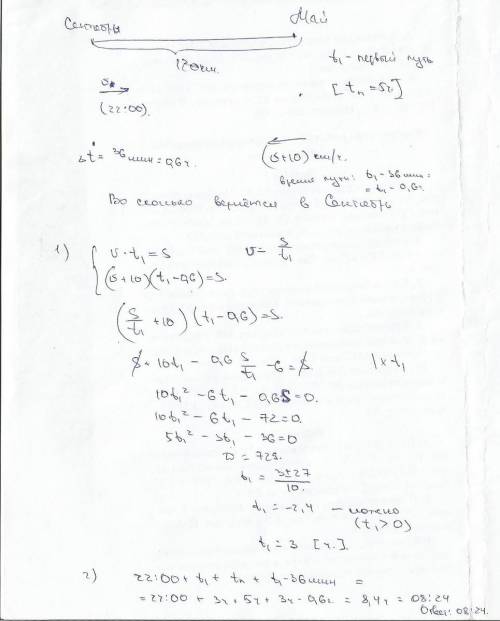 Сентябрь Май
120 км.
t₁ - первый путь
[tп = 5ч]
(22:00).
Δt = 36 мин = 0,6ч.
(υ+10) км/ч.
время пути: t₁ - 36 мин =
= t₁ - 0,6ч
Во сколько вернётся в Сентябрь
1) { υ · t₁ = S υ = S/t₁
(υ+10)(t₁-0,6) = S.
(S/t₁ + 10)(t₁-0,6) = S.
S + 10t₁ - 0,6 S/t₁ - 6 = S | × t₁
10t₁² - 6t₁ - 0,6S = 0.
10t₁² - 6t₁ - 72 = 0.
5t₁² - 3t₁ - 36 = 0
D = 729.
t₁ = 3±27/10.
t₁ = -2,4 - ложно
(t₁ > 0)
t₁ = 3 [ч.].
2) 22:00 + t₁ + tп + t₁ - 36 мин =
= 22:00 + 3ч + 5ч + 3ч - 0,6ч = 8,4ч = 08:24
Ответ: 08:24.